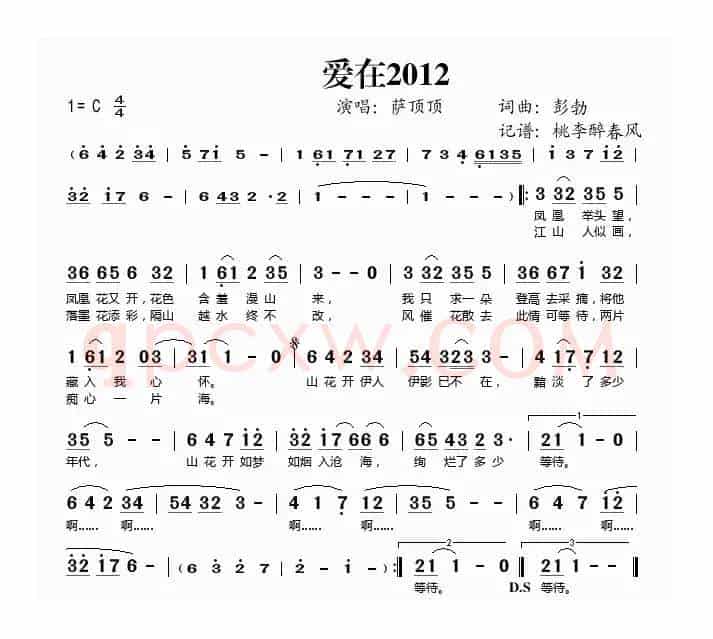 爱在2012
1= C 4/4 演唱：萨顶顶 词曲：彭勃
记谱：桃李醉春风
( 6 4 2 34 | 5 71 5 - | 1 61 71 27 | 7 3 4 6135 | 1 3 7 12
32 17 6 - | 6 43 2 · 2 | 1 - - - | 1 - - - ) ‖: 3 32 35 5 |
凤凰 举头望，
江山 人似画，
36 65 6 32 | 1 61 2 35 | 3 - - 0 | 3 32 35 5 | 36 67 1 36 |
凤凰花又开，花色 含羞 漫山 来， 我只 求一朵 登高去采摘，将他
落墨花添彩，隔山 越水 终不 改， 风催 花敢去 此情可等待，两片
1 61 2 03 | 31 1 - 0 | 6 4 2 34 | 54 323 3 - | 4 17 7 12 |
蕴入 我 心 怀。 山花开伊人 伊影已不 在， 黯淡 了多少
痴心 一 片 海。
qpcxw.COM
35 5 - - | 6 4 7 12 | 32 17 66 6 | 65 43 2 3· | 21 1 - 0 |
1
年代， 山花开如梦 如烟入沧 海， 绚 烂了多少 等待。
6 4 2 34 | 54 32 3 - | 4 1 7 12 | 35 5 - - | 6 4 7 12 |
啊…… 啊…… 啊…… 啊…… 啊…… 啊……
32 17 6 - | ( 6 3 2 7 | 2 - 1 - ) :‖ 21 1 - 0 ‖ 21 1 - - ‖
2 3
等待。 D.S 等待。